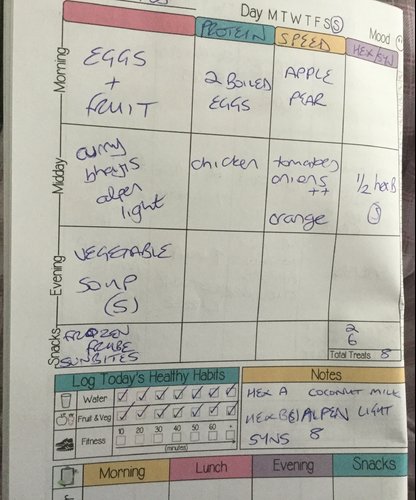 Day M T W T F S S
PROTEIN SPEED Mood
HEX/SYN
Morning
EGGS
+
FRUIT
2 BOILED
EGGS
APPLE
PEAR
Midday
curry
bhajis
alpen
light
chicken
tomatoes
onions
++
orange
1/2 hex B
Evening
VEGETABLE
SOUP
(S)
Snacks
FROZEN
FRUBE
SUNBITES
2
6
Total Treats 8
Log Today's Healthy Habits
Water
Fruit & Veg
Fitness
10 20 30 40 50 60 +
(minutes)
Notes
HEX A COCONUT MILK
HEX B ALPEN LIGHT
SYNS 8
Morning Lunch Evening Snacks